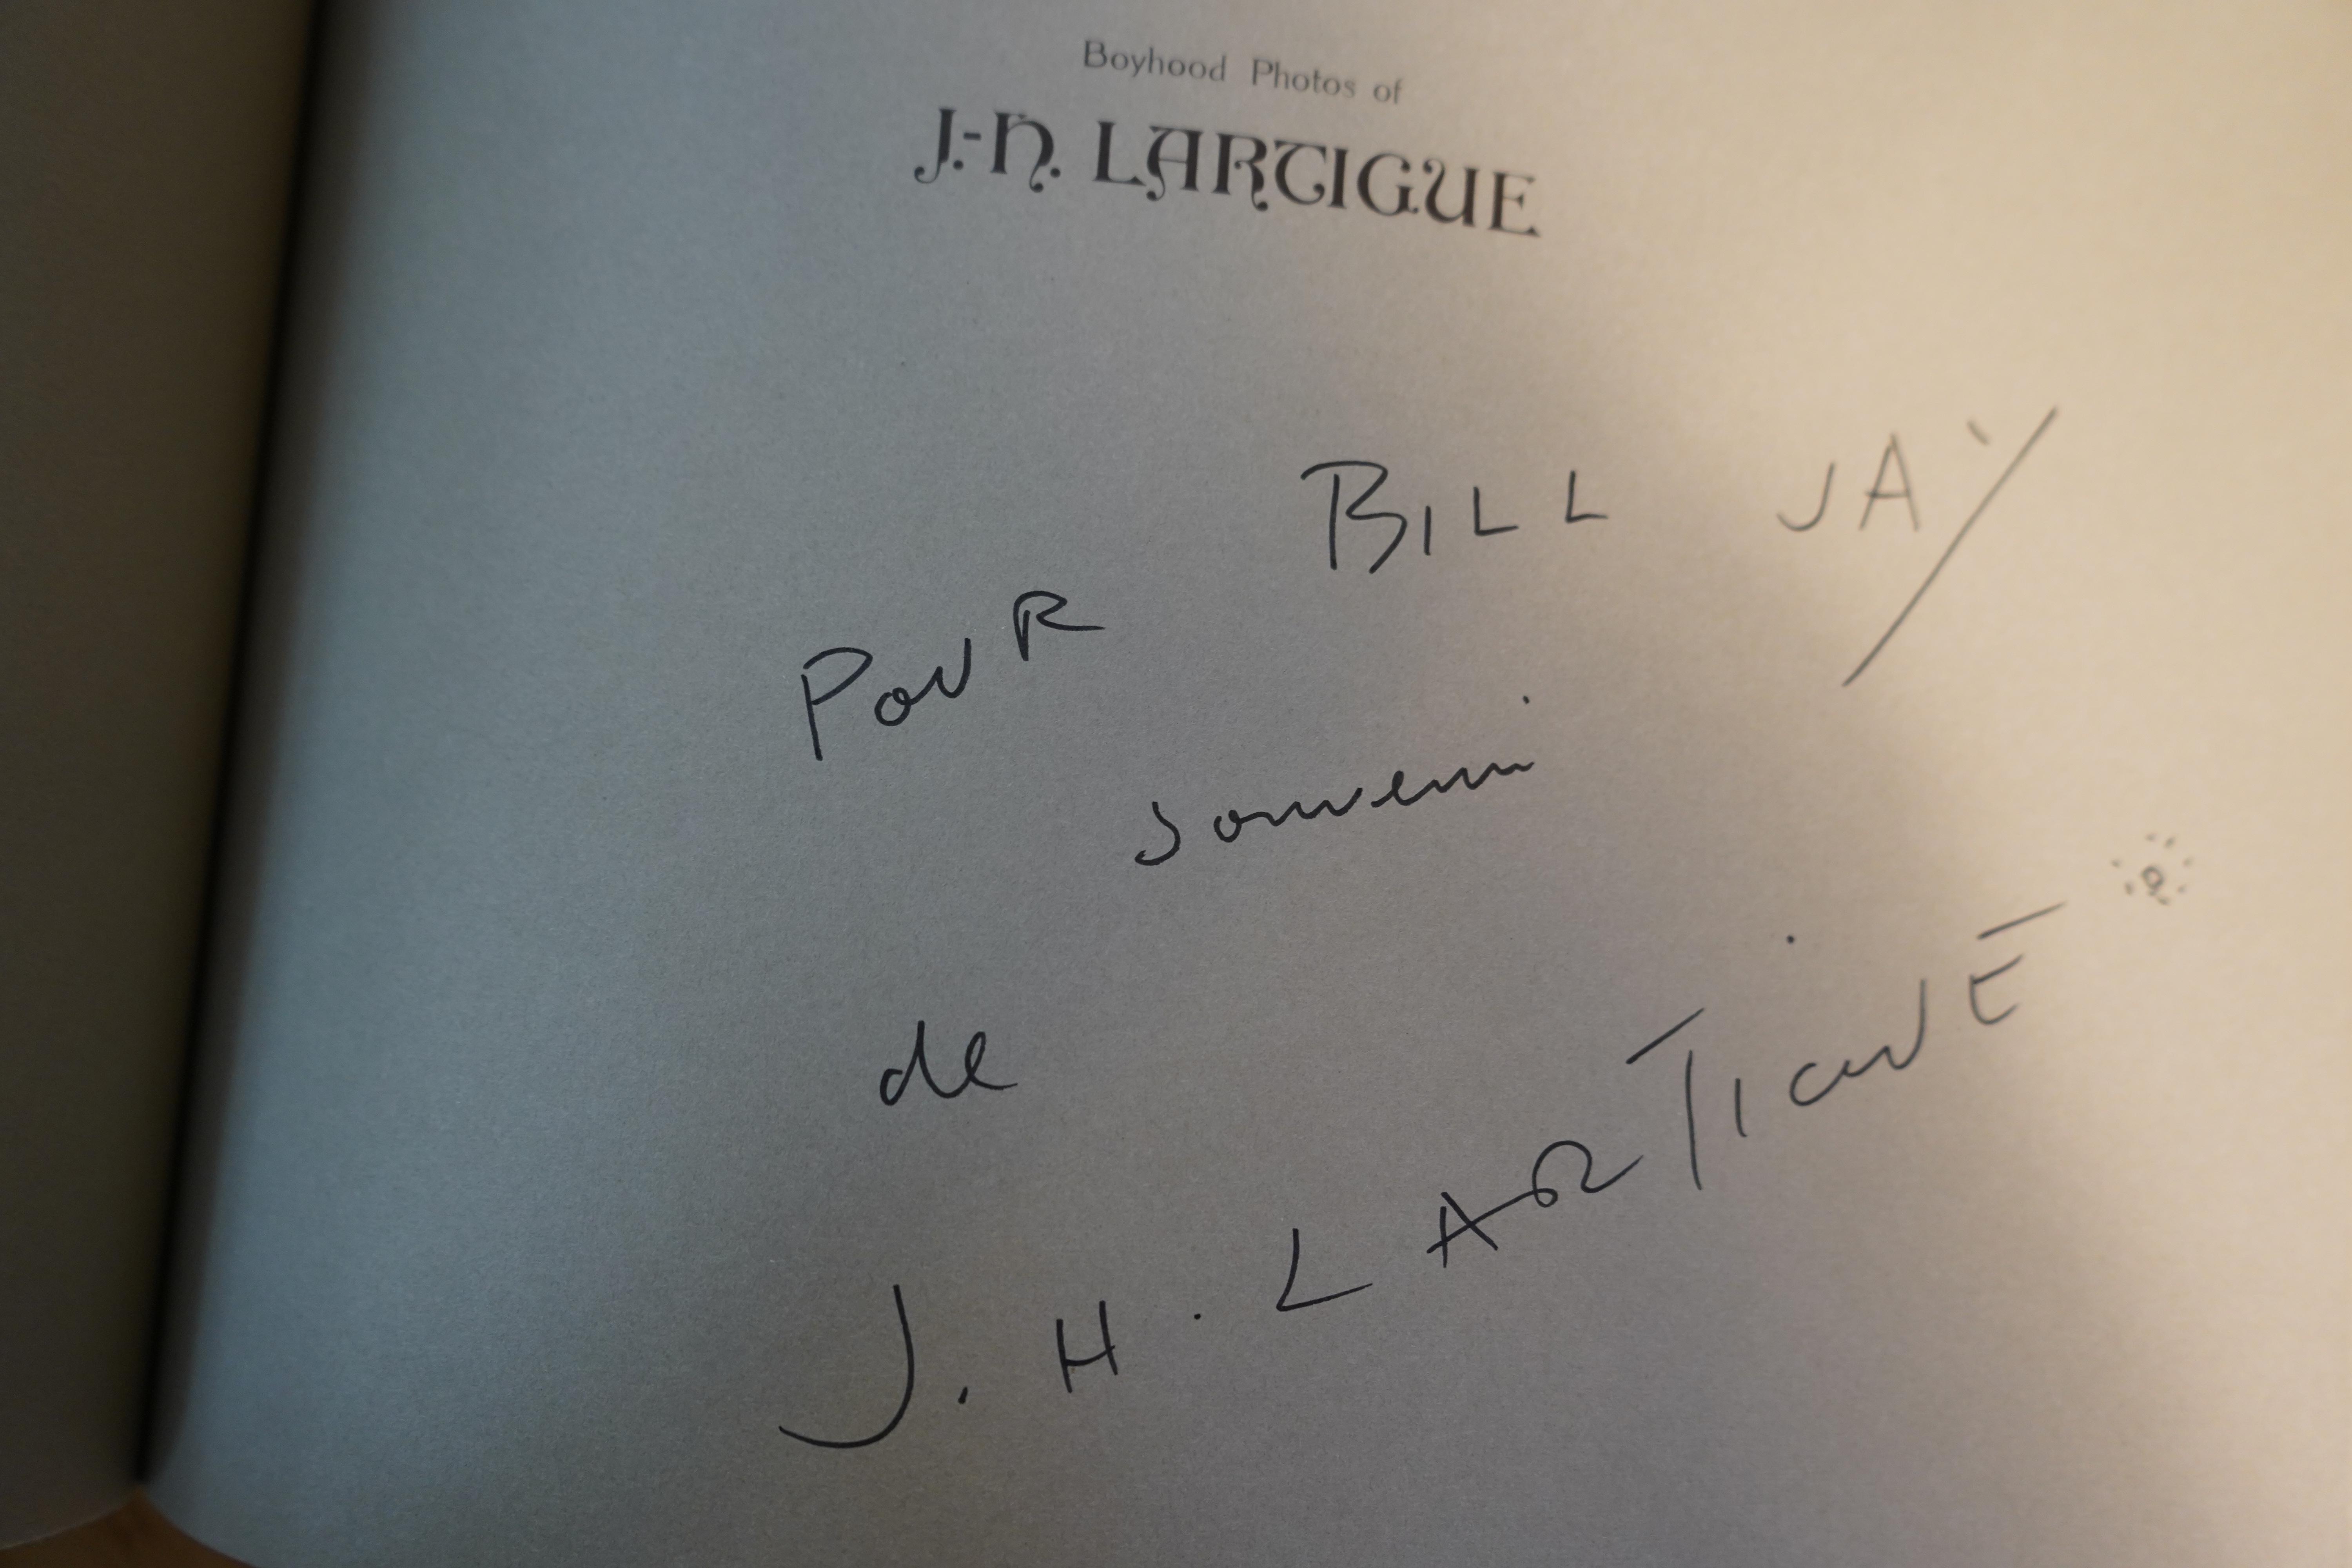 Boyhood Photos of
J.-H. LARTIGUE
POUR BILL JAY
souvenir
de
J. H. LARTIGUE